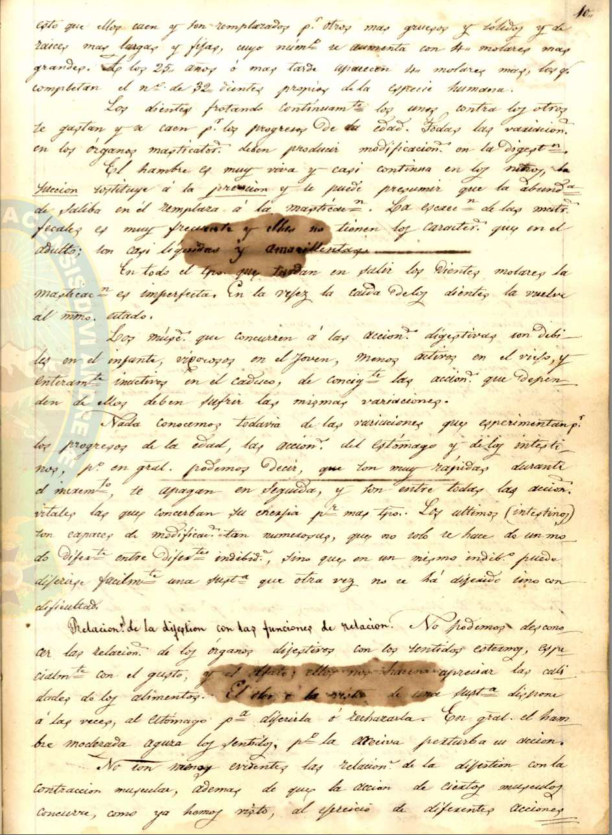 10..
esto que ellos caen y son remplazados pr. otros mas gruesos y sólidos y de
raices mas largas y fijas, cuyo numo. se aumenta con 4 molares mas
grandes. A los 25 años ó mas tarde aparecen 4 molares mas, los q.
completan el no. de 32 dientes propios de la especie humana.
Los dientes frotando continuamte. los unos contra los otros
se gastan y a caen pr. los progresos de la edad. Todas las variacions.
en los organos masticators. deben producir modificacions. en la digestn.
El hambre es muy viva y casi continua en los niños, la
succion sostituye á la presion y se puede presumir que la abunda.
de saliba en él remplaza á la masticacn. La escrecn. de las matrs.
fecales es muy frecuente y ellas no tienen los caracts. que en el
adulto; son casi liquidas y amarillentas.
En todo el tpo. que tardan en salir los dientes molares la
masticacn. es imperfecta. En la vejez la caida de los dientes la vuelve
al mmo. estado.
Los múscs. que concurren á las accions. digestivas son debi-
les en el infante, vigorosos en el Joven, menos activos en el viejo, y
enterante. inactivos en el caduco, de consigte. las accions. que depen-
den de ellos deben sufrir las mismas variaciones.
Nada conocemos todavia de las variaciones que esperimentan pr.
los progresos de la edad, las accions. del estómago y de los intesti-
nos, po. en gral. podemos decir, que son muy rápidas durante
el incremto., se apagan en seguida, y son entre todas las accions.
vitales las que conserban su enerjia pr. mas tpo. Los ultimos (intestinos)
son capaces de modificacs. tan numerosas, que no solo se hace de un mo-
do diferte. entre difertes. indibids., sino que en un mismo indibo. puede
dijerirse facilmte. una susta. que otra vez no se há dijerido sino con
dificultad.
Relacions. de la dijestion con las funciones de relacion. No podemos descono-
cer las relacions. de los organos dijestivos con los sentidos esternos, espe-
cialmte. con el gusto, y el olfato; ellos nos hacen apreciar las cali-
dades de los alimentos. El olor o la vista de una susta. dispone
á las veces, al estomago pa. dijerirla ó rehusarla. En gral. el ham-
bre moderada aguza los sentidos, po. la exesiva perturba su accion.
No son menos evidentes las relacions. de la dijestion con la
contraccion muscular, ademas de que la accion de ciertos musculos
concurre, como ya hemos visto, al ejercicio de diferentes acciones